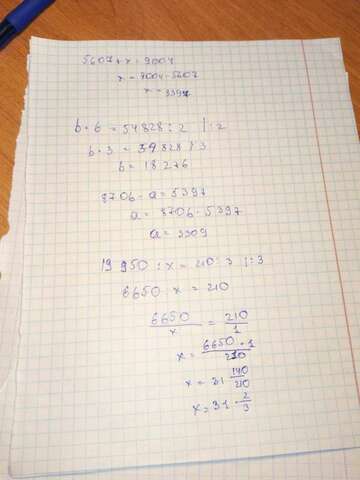 5607 + x = 9004
x = 9004 - 5607
x = 3397
b · 6 = 54828 : 2 | : 2
b · 3 = 54828 : 3
b = 18276
8706 - a = 5397
a = 8706 - 5397
a = 3309
19 950 : x = 210 · 3 | : 3
6650 : x = 210
6650/x = 210/1
x = 6650 · 1/210
x = 31 140/210
x = 31 · 2/3